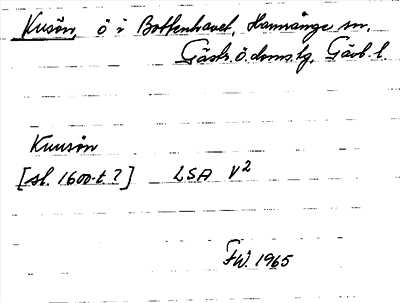 Kusön, ö i Bottenhavet, Hamrånge sn,
Gästr. ö. doms.lg, Gävb. l.
Kuusön
[sl. 1600-t.?] LSA V2
FW. 1965